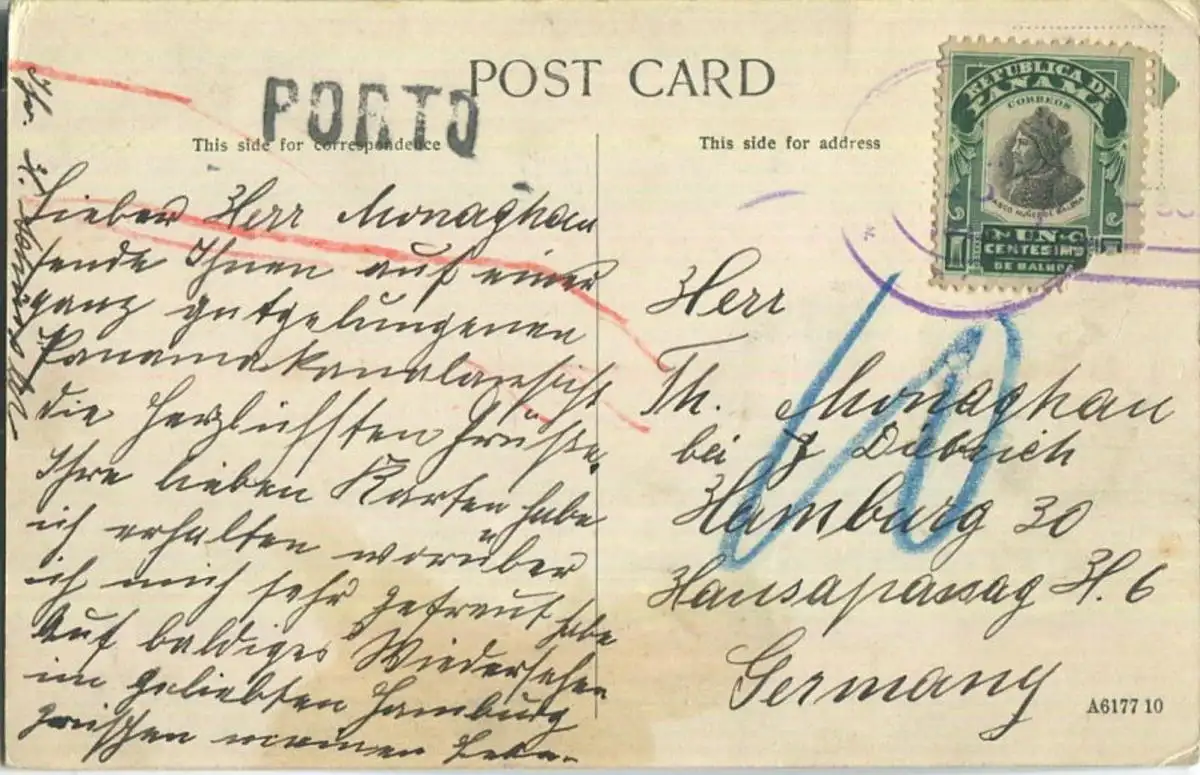 POST CARD
PORTO
This side for correspondence
This side for address
REPUBLICA DE
PANAMA
CORREOS
UN
CENTESIMO
DE BALBOA
Lieber Herr Monaghan
sende Ihnen auf einer
ganz gutgelungenen
Panamakanalansicht
die herzlichsten Grüße.
Ihre lieben Karten habe
ich erhalten worüber
ich mich sehr gefreut habe
Auf baldiges Wiedersehen
im geliebten Hamburg
meinen
Ihr
Herr
Th. Monaghan
bei J Dibrich
Hamburg 30
Hansapassag H. 6
Germany
10
A6177 10